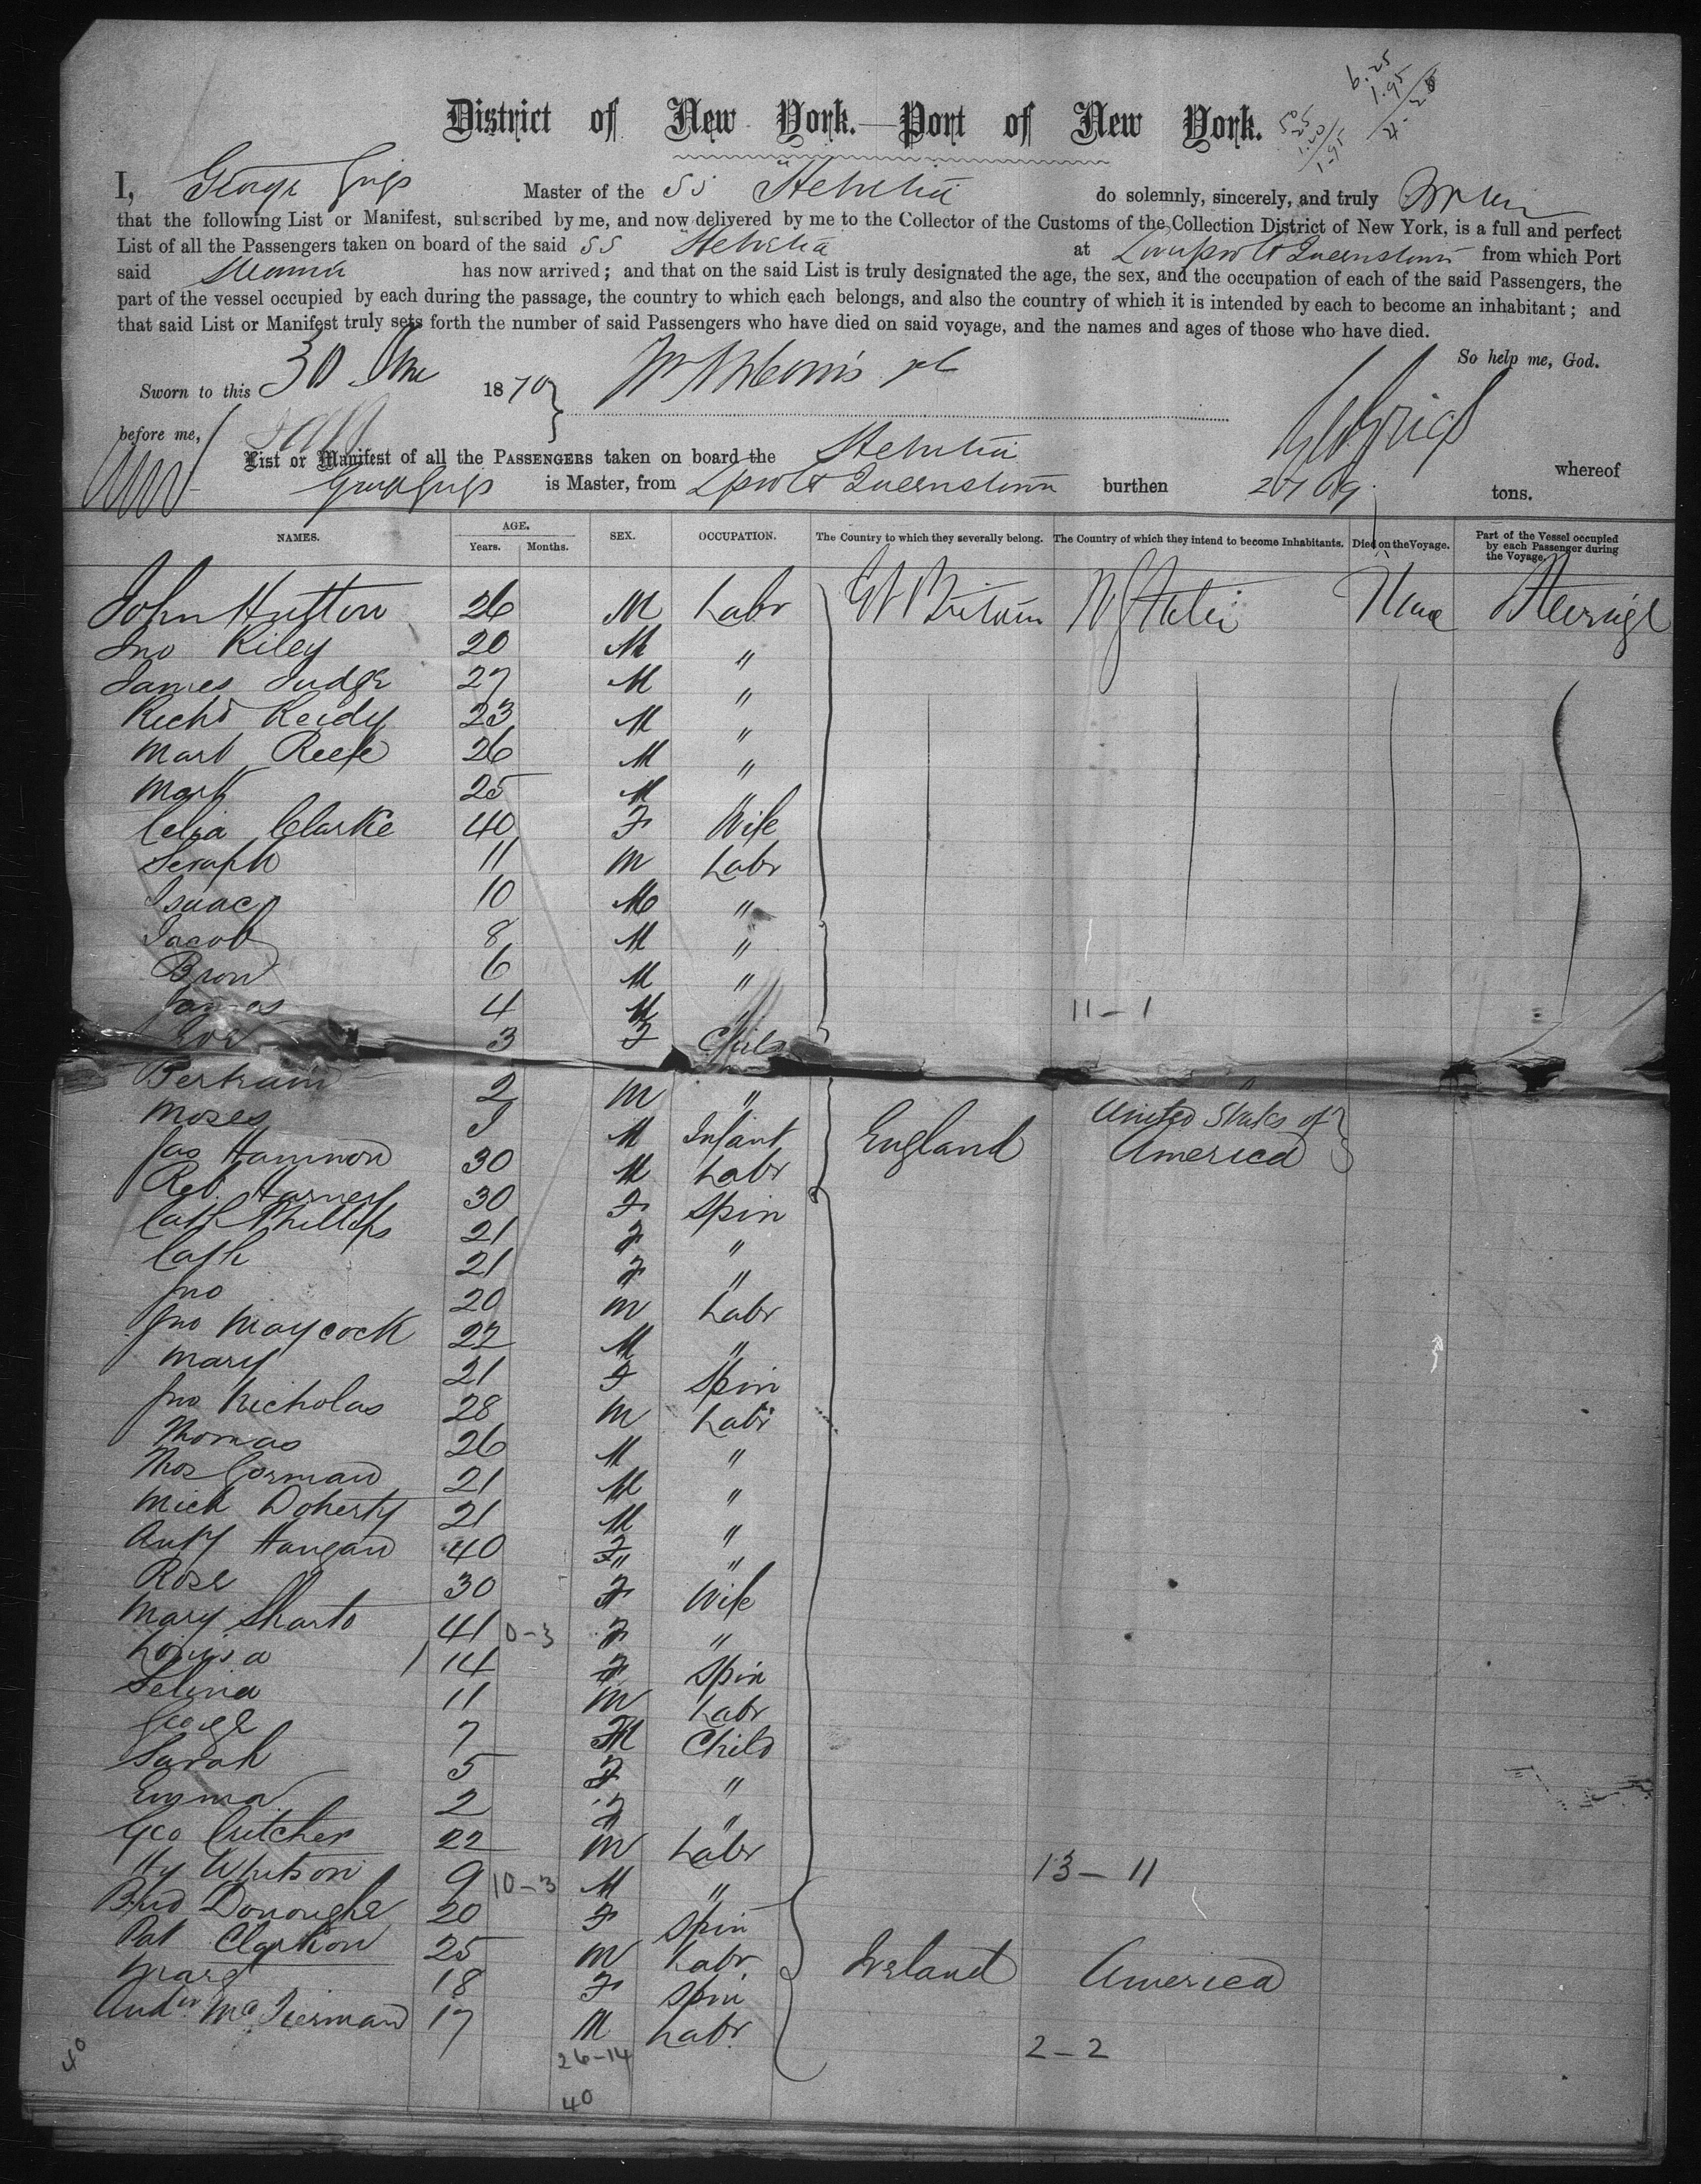 6.25
1.95
District of New York.—Port of New York.
I, George Grigs Master of the SS Helvetia do solemnly, sincerely, and truly swear
that the following List or Manifest, subscribed by me, and now delivered by me to the Collector of the Customs of the Collection District of New York, is a full and perfect
List of all the Passengers taken on board of the said SS Helvetia at Liverpool & Queenstown from which Port
said Steamer has now arrived; and that on the said List is truly designated the age, the sex, and the occupation of each of the said Passengers, the
part of the vessel occupied by each during the passage, the country to which each belongs, and also the country of which it is intended by each to become an inhabitant; and
that said List or Manifest truly sets forth the number of said Passengers who have died on said voyage, and the names and ages of those who have died.
So help me, God.
Sworn to this 30 June 1870
before me,
List or Manifest of all the PASSENGERS taken on board the Helvetia whereof
George Grigs is Master, from Lpool & Queenstown burthen tons.
NAMES. AGE. Years. Months. SEX. OCCUPATION. The Country to which they severally belong. The Country of which they intend to become Inhabitants. Died on the Voyage. Part of the Vessel occupied by each Passenger during the Voyage.
John Hutton 26 M Labr Gt Britain U States None Steerage
Jno Riley 20 M "
James Judge 27 M "
Richd Reidy 23 M "
Mart Reefe 26 M "
Mark 25 M "
Celia Clarke 40 F Wife
Seraph 11 M Labr
Isaac 10 M "
Jacob 8 M "
Bron 6 M "
James 4 M " 11-1
Eve 3 F Child
Bertram 2 M "
Moses M Infant England United States of America
Jas Hammon 30 M Labr
Reb. Harness 30 F Spin
Cath Phillips 21 F "
Cath 21 F "
Jno 20 M Labr
Jno Maycock 22 M "
Mary 21 F Spin
Jno Nicholas 28 M Labr
Thomas 26 M "
Thos Gorman 21 M "
Mick Doherty 21 M "
Anty Hangan 40 "
Rose 30 F Wife
Mary Sharto 41 0-3 F "
Louisa 14 F Spin
Selina 11 M Labr
George 7 M Child
Sarah 5 F "
Emma 2 F "
Geo Critcher 22 M Labr
Hy Whitson 9 10-3 M " 13-11
Brid Donoughe 20 F Spin
Pat Clarkson 25 M Labr Ireland America
Marg 18 F Spin
Andw McTiernan 17 M Labr
40 26-14 2-2
40